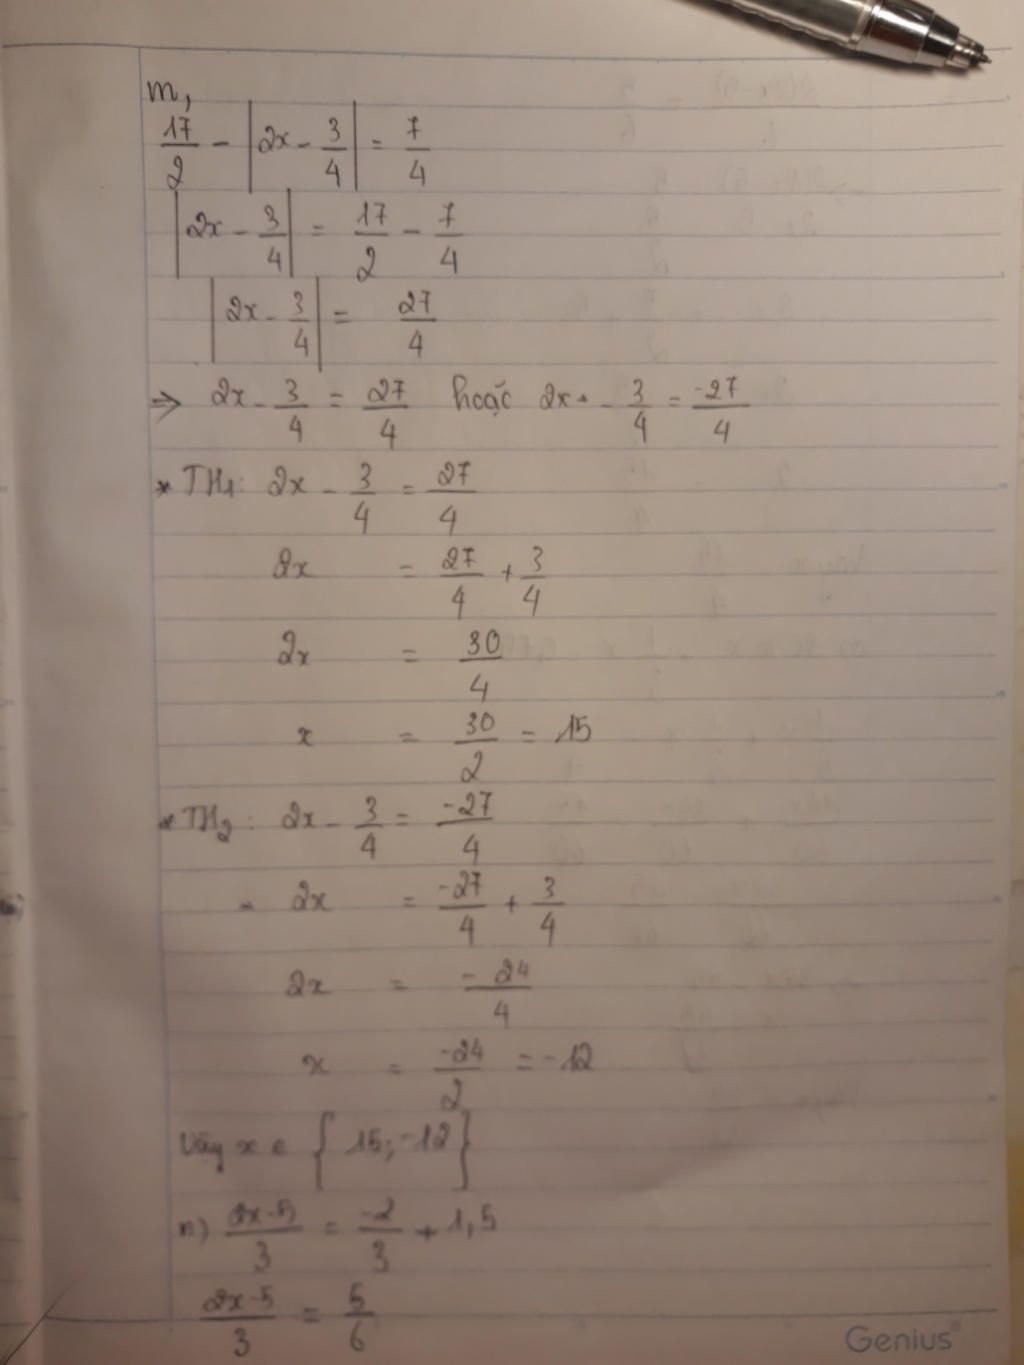 m,
17/2 - |2x - 3/4| = 7/4
|2x - 3/4| = 17/2 - 7/4
|2x - 3/4| = 27/4
=> 2x - 3/4 = 27/4 hoặc 2x - 3/4 = -27/4
* TH1: 2x - 3/4 = 27/4
2x = 27/4 + 3/4
2x = 30/4
x = 30/2 = 15
* TH2: 2x - 3/4 = -27/4
2x = -27/4 + 3/4
2x = -24/4
x = -24/2 = -12
Vậy x ∈ {15; -12}
n) 2x-5/3 = -2/3 + 1,5
2x-5/3 = 5/6
Genius